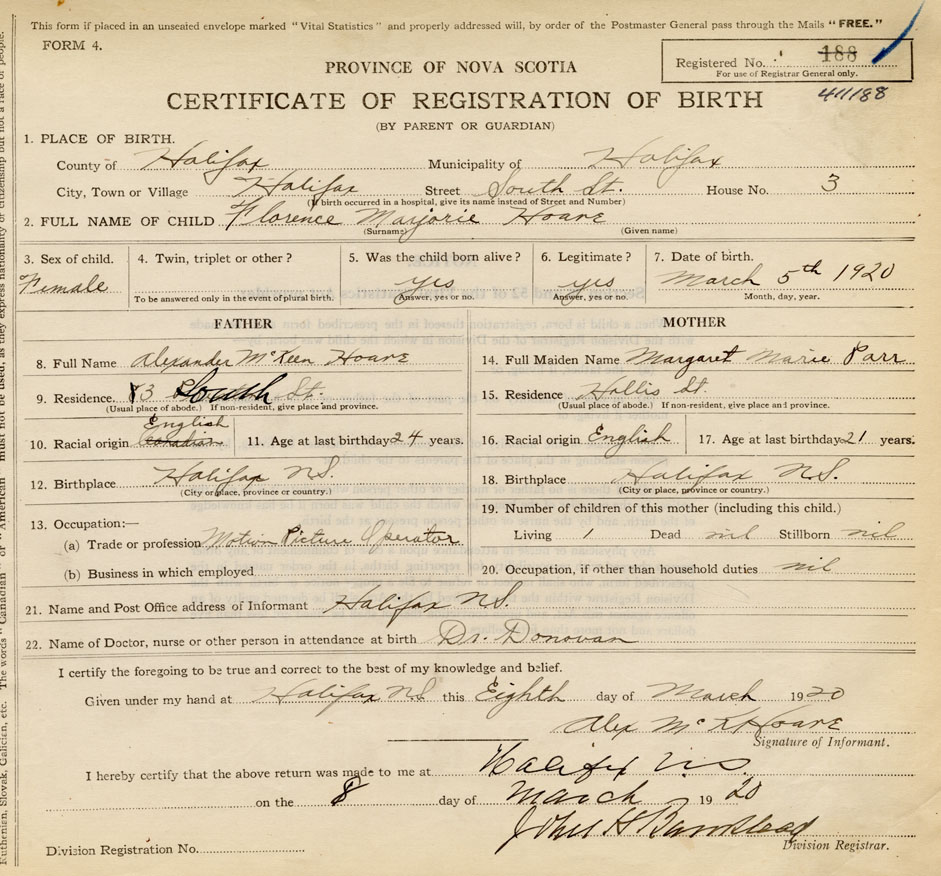 This form if placed in an unsealed envelope marked "Vital Statistics" and properly addressed will, by order of the Postmaster General pass through the Mails "FREE."
FORM 4.
Registered No. 188
For use of Registrar General only.
411188
PROVINCE OF NOVA SCOTIA
CERTIFICATE OF REGISTRATION OF BIRTH
(BY PARENT OR GUARDIAN)
1. PLACE OF BIRTH.
County of Halifax Municipality of Halifax
City, Town or Village Halifax Street South St. House No. 3
(If birth occurred in a hospital, give its name instead of Street and Number)
2. FULL NAME OF CHILD Florence Marjorie Hoare
(Surname) (Given name)
3. Sex of child. Female
4. Twin, triplet or other?
To be answered only in the event of plural birth.
5. Was the child born alive? yes
Answer, yes or no.
6. Legitimate? yes
Answer, yes or no.
7. Date of birth. March 5th 1920
Month, day, year.
FATHER
8. Full Name Alexander McKeen Hoare
9. Residence. 3 South St.
(Usual place of abode.) If non-resident, give place and province.
10. Racial origin English Canadian 11. Age at last birthday 24 years.
12. Birthplace Halifax N.S.
(City or place, province or country.)
13. Occupation:—
(a) Trade or profession Motion Picture Operator
(b) Business in which employed
MOTHER
14. Full Maiden Name Margaret Marie Parr
15. Residence Hollis St.
(Usual place of abode.) If non-resident, give place and province.
16. Racial origin English 17. Age at last birthday 21 years.
18. Birthplace Halifax N.S.
(City or place, province or country.)
19. Number of children of this mother (including this child.)
Living 1 Dead nil Stillborn nil
20. Occupation, if other than household duties nil
21. Name and Post Office address of Informant Halifax N.S.
22. Name of Doctor, nurse or other person in attendance at birth Dr. Donovan
I certify the foregoing to be true and correct to the best of my knowledge and belief.
Given under my hand at Halifax N.S. this Eighth day of March 1920
Alex McK Hoare
Signature of Informant.
I hereby certify that the above return was made to me at Halifax N.S.
on the 8 day of March 1920
John H
Division Registrar.
Division Registration No.
Ruthenian, Slovak, Galician, etc. The words "Canadian" or "American" must not be used, as they express nationality or citizenship but not a race of people.